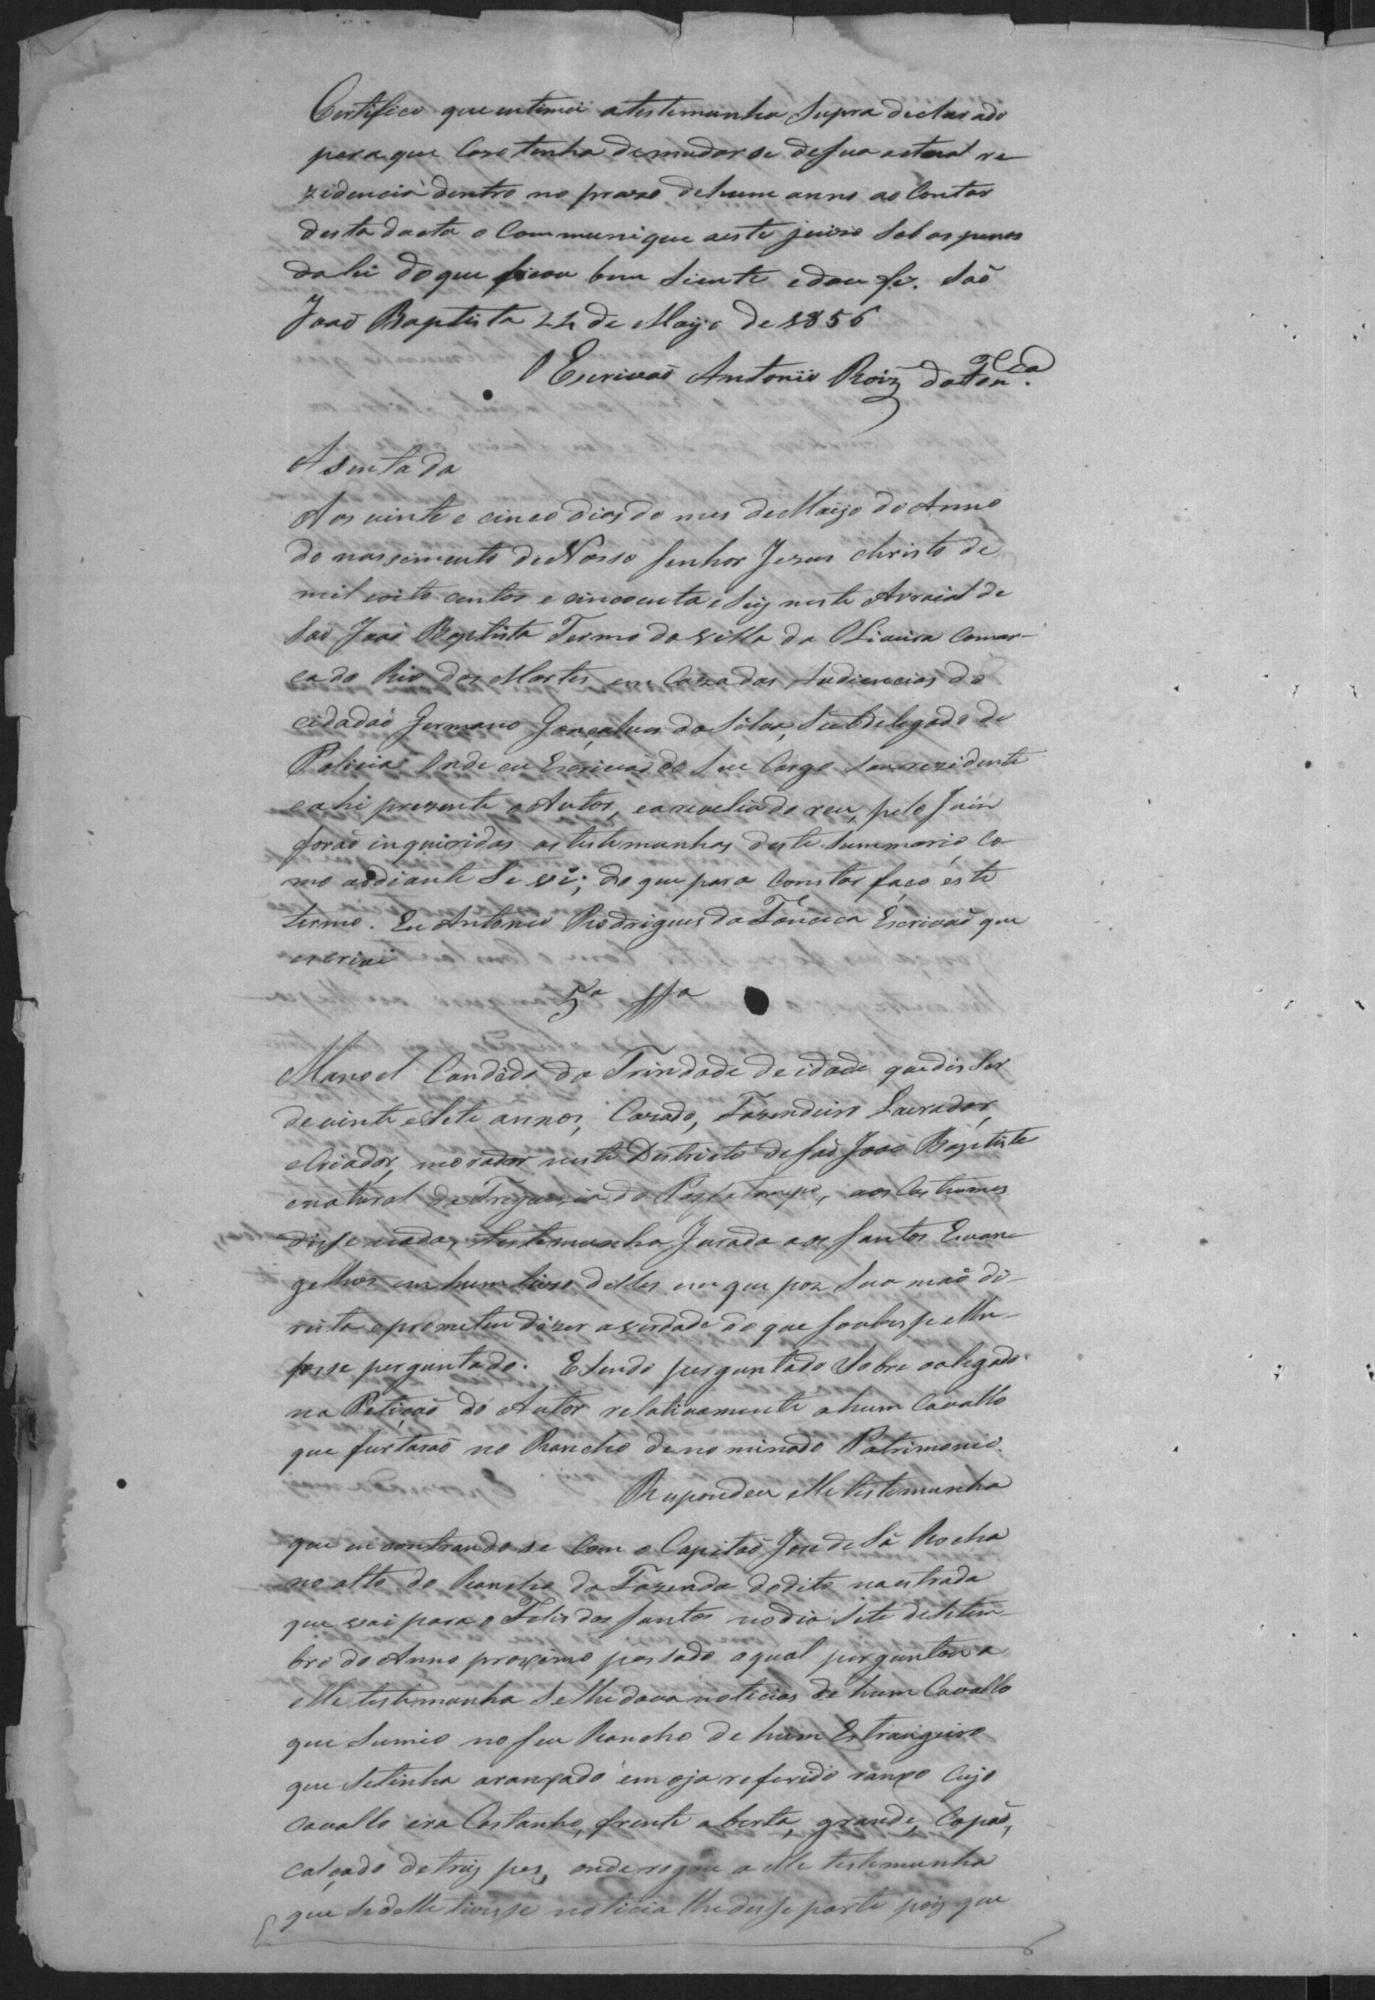 Certifico que entimei atestemunha Supra declarado
para que Caso tenha demudar se de sua actual re-
zidencia dentro no prazo dehum anno ao Contar
desta dacta o Communique aeste juizo Sob as penas
da lei do que ficou bem Siente edou fé. São
João Baptista 22 de Mayo de 1856
O Escrivaõ Antonio Roiz da Fon.ca
Asentada
Aos vinte e cinco dias do mes de Mayo do Anno
do nascimento de Nosso Senhor Jezus Christo de
mil oito centos e cincoenta e Seis neste Arraial de
Saõ Joaõ Baptista Termo da villa da Oliveira Comar-
ca do Rio das Mortes em Caza das Audiencias do
cidadaõ Germano Gonçalves da Silva, Subdelegado de
Policia Onde eu Escrivaõ de Seu Cargo Sou rezidente
e ahi prezente o Autor, earevelia do reu, pelo Juiz
foraõ inquiridas as testemunhas deste Summario Co-
mo addiante Se vê; do que para Constar faço este
termo. Eu Antonio Rodrigues da Fonceca Escrivaõ que
escrivi
5ª Tª
Manoel Candido da Trindade de idade que dis Ser
de vinte e Sete annos, Cazado, Fazendeiro Lavrador,
eCriador, morador neste Destricto de Saõ Joaõ Baptista
enatural da Freguesia do aos Costumes
disse nada, testemunha Jurada aos Santos Evan-
gelhos em hum livro delles em que poz Sua maõ di-
reita eprometeu dizer averdade do que Soubesse elhe
fosse perguntado. ESendo perguntado Sobre oalegado
na Petiçaõ do Autor relativamente ahum Cavallo
que furtaraõ no Rancho denominado Patrimonio.
Respondeu elle testemunha
que encontrando se Com o Capitaõ Joze de Sá Rocha
no alto do Rancho da Fazenda dodito naestrada
que vai para o Felis dos Santos nodia Sete deSetem-
bro do Anno proximo passado oqual perguntou a
elle testemunha Se lhe dava noticias de hum Cavallo
que Sumio no Seu Rancho de hum Estrangeiro
que Setinha aranxado emoja referido ranxo Cujo
cavallo era Castanho, frente aberta, grande, Capaõ,
calçado de tres pes, onde rogou a elle testemunha
que Sedelle tivesse noticia lhe desse parte pois que